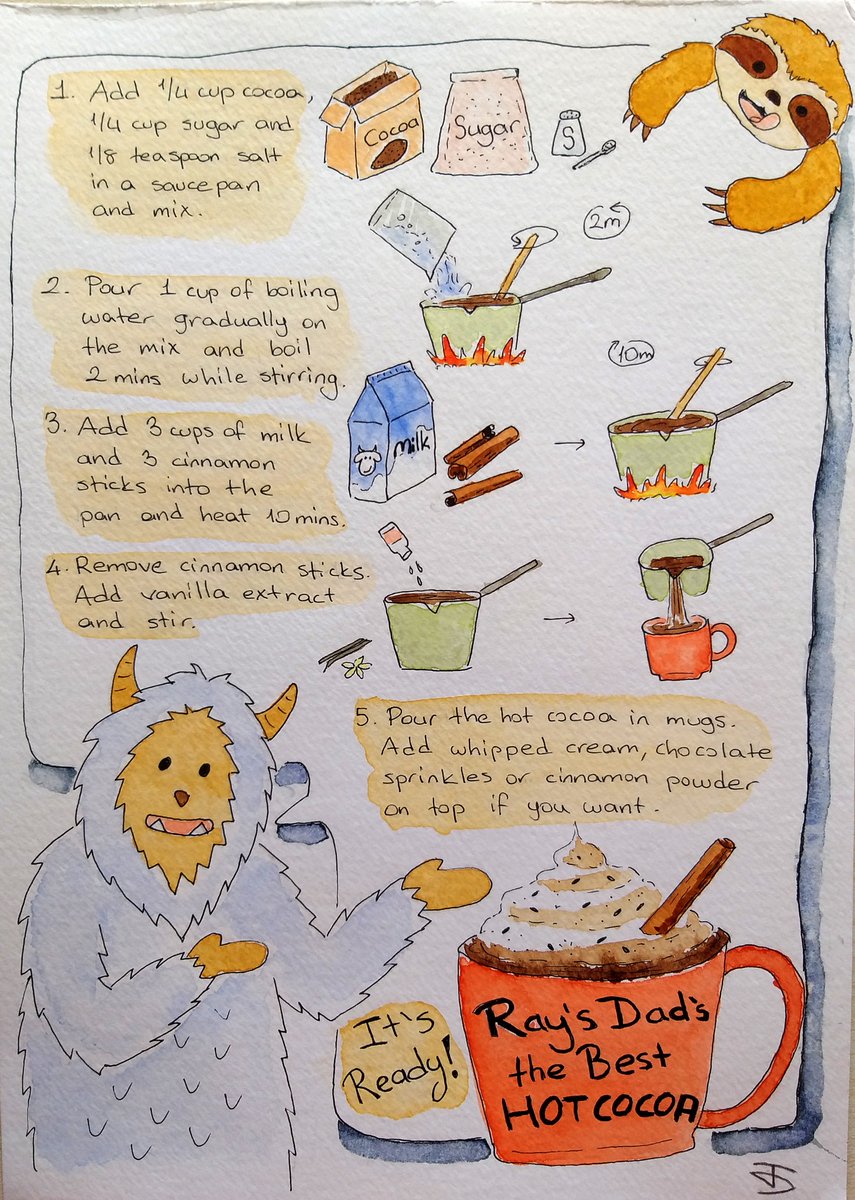 1. Add 1/4 cup cocoa,
1/4 cup sugar and
1/8 teaspoon salt
in a saucepan
and mix.
Cocoa
Sugar
S
2. Pour 1 cup of boiling
water gradually on
the mix and boil
2 mins while stirring.
2m
3. Add 3 cups of milk
and 3 cinnamon
sticks into the
pan and heat 10 mins.
milk
10m
4. Remove cinnamon sticks.
Add vanilla extract
and stir.
5. Pour the hot cocoa in mugs.
Add whipped cream, chocolate
sprinkles or cinnamon powder
on top if you want.
It's
Ready!
Ray's Dad's
the Best
HOT COCOA